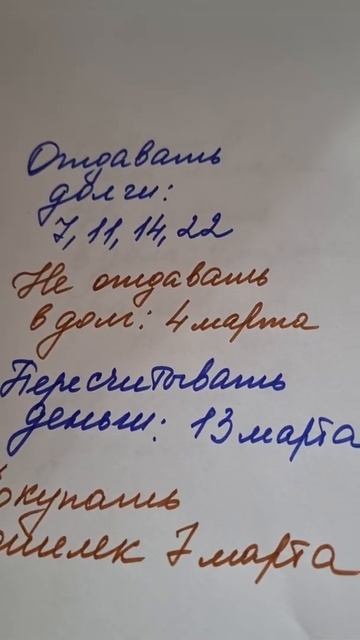 Отдавать
долги:
7, 11, 14, 22
Не отдавать
в долг: 4 марта
Пересчитывать
деньги: 13 марта
окупать
ошелек 7 марта